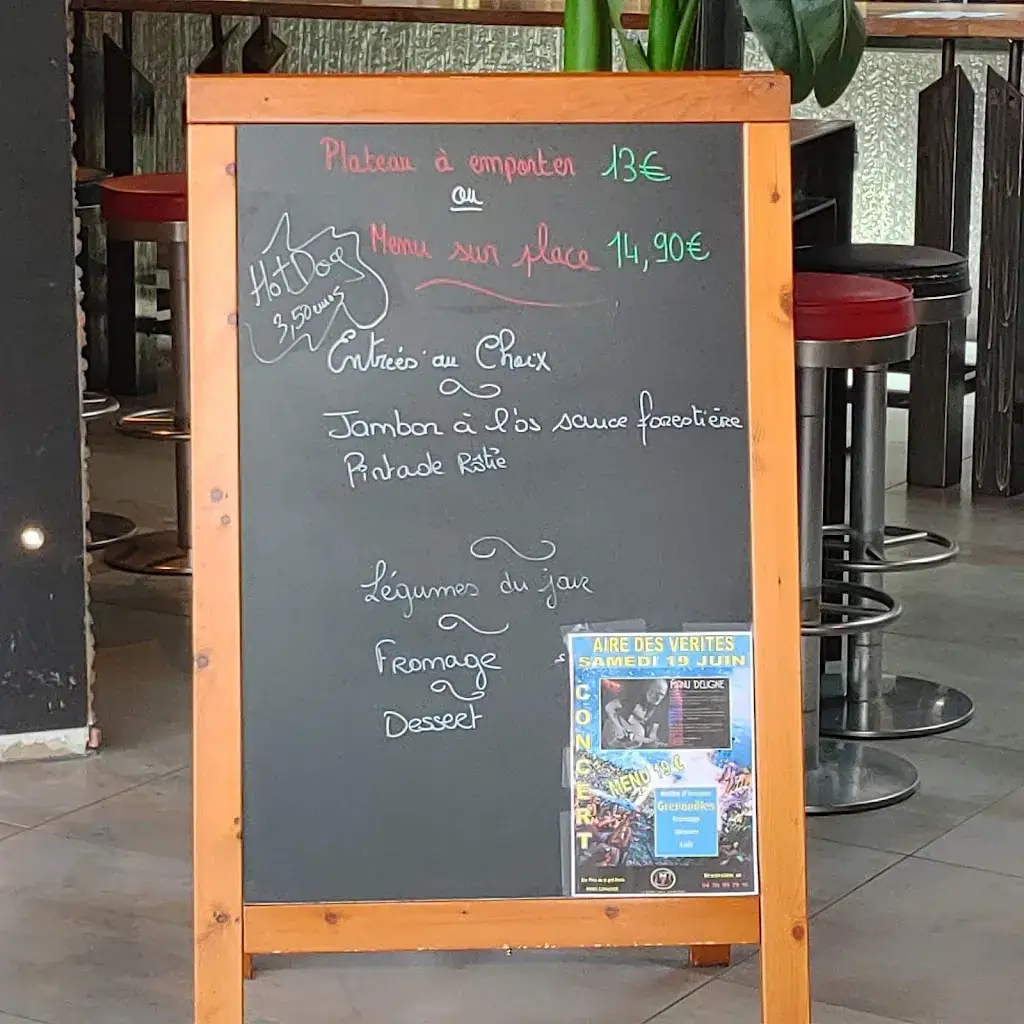 Plateau à emporter 13€
ou
Menu sur place 14,90€
Hot Dog
3,50 euros
Entrées au Choix
Jambon à l'os sauce forestière
Pintade Rôtie
Légumes du jour
Fromage
Dessert
AIRE DES VERITES
SAMEDI 19 JUIN
CONCERT
MANU DELIGNE
MENU 19 €
Grenouilles
Fromage